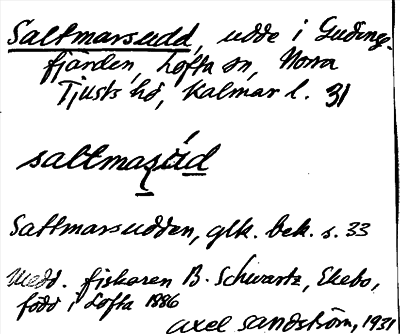 Saltmarsudd, udde i Gudings-
fjärden, Lofta sn, Norra
Tjusts hd, Kalmar l. 31
saltmasúd
Saltmarsudden, glk. bek. s. 33
Medd. fiskaren B. Schwartz, Ekebo,
född i Lofta 1886
Axel Sandström, 1931